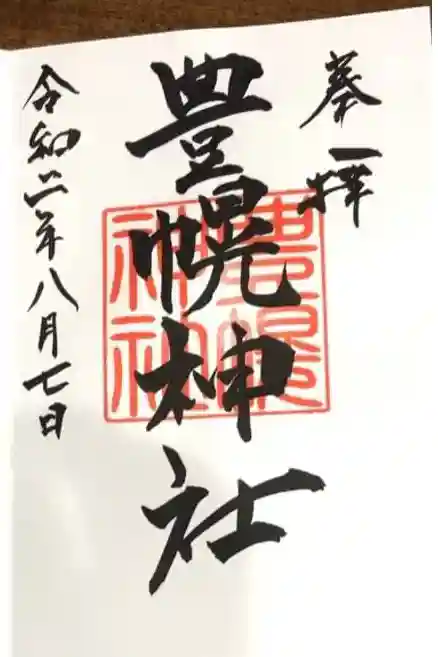 奉拝
豊幌神社
豊幌神社
令和二年八月七日